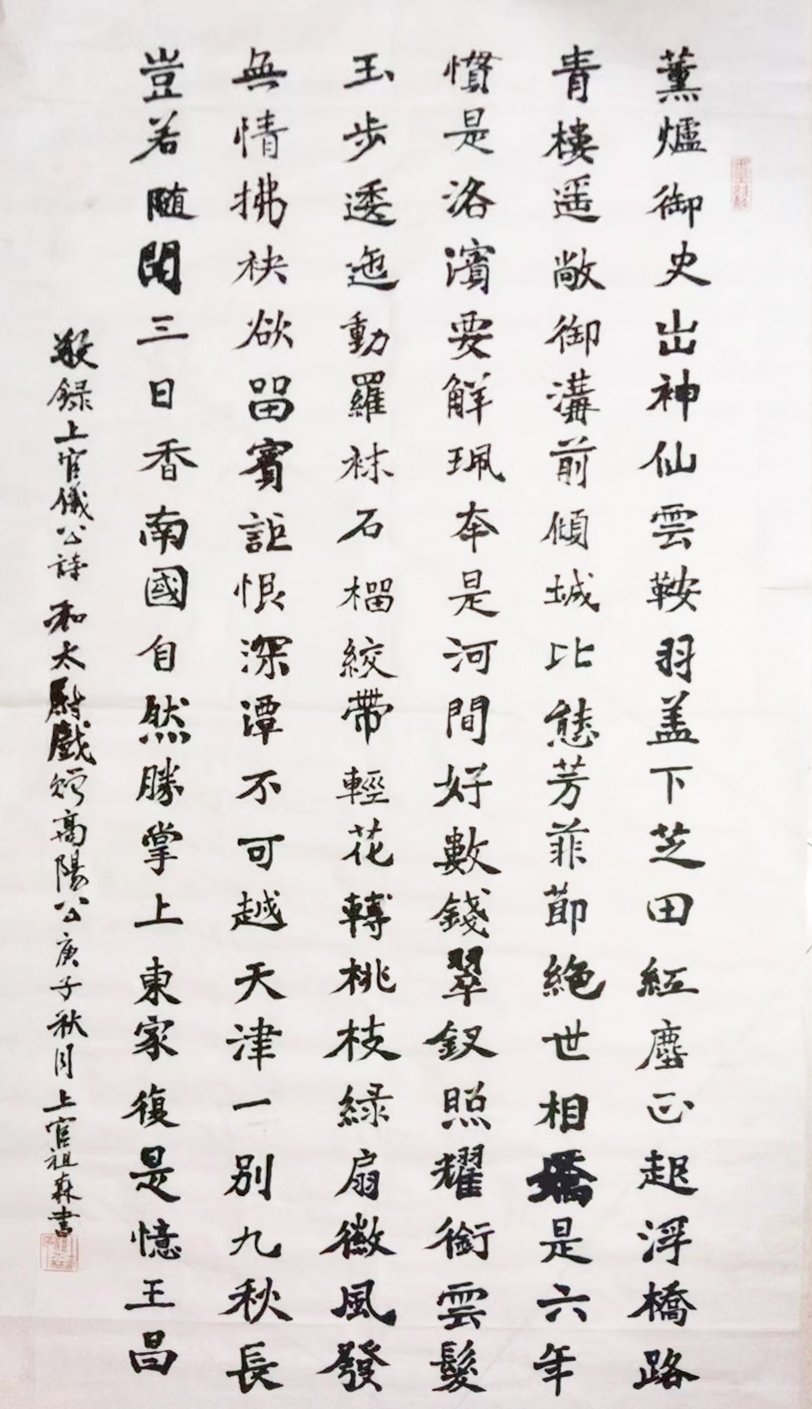 薰爐御史出神仙雲鞍羽盖下芝田紅塵正起浮橋路
青樓遥敞御溝前傾城比態芳菲節絶世相嬌是六年
慣是洛濱要解珮本是河間好數錢翠釵照耀銜雲髮
玉步逶迤動羅袜石榴絞帶輕花轉桃枝緑扇微風發
無情拂袂欲留賓詎恨深潭不可越天津一别九秋長
豈若随聞三日香南國自然勝掌上東家復是憶王昌
敬録上官儀公詩和太尉戲贈高陽公庚子秋月上官祖森書